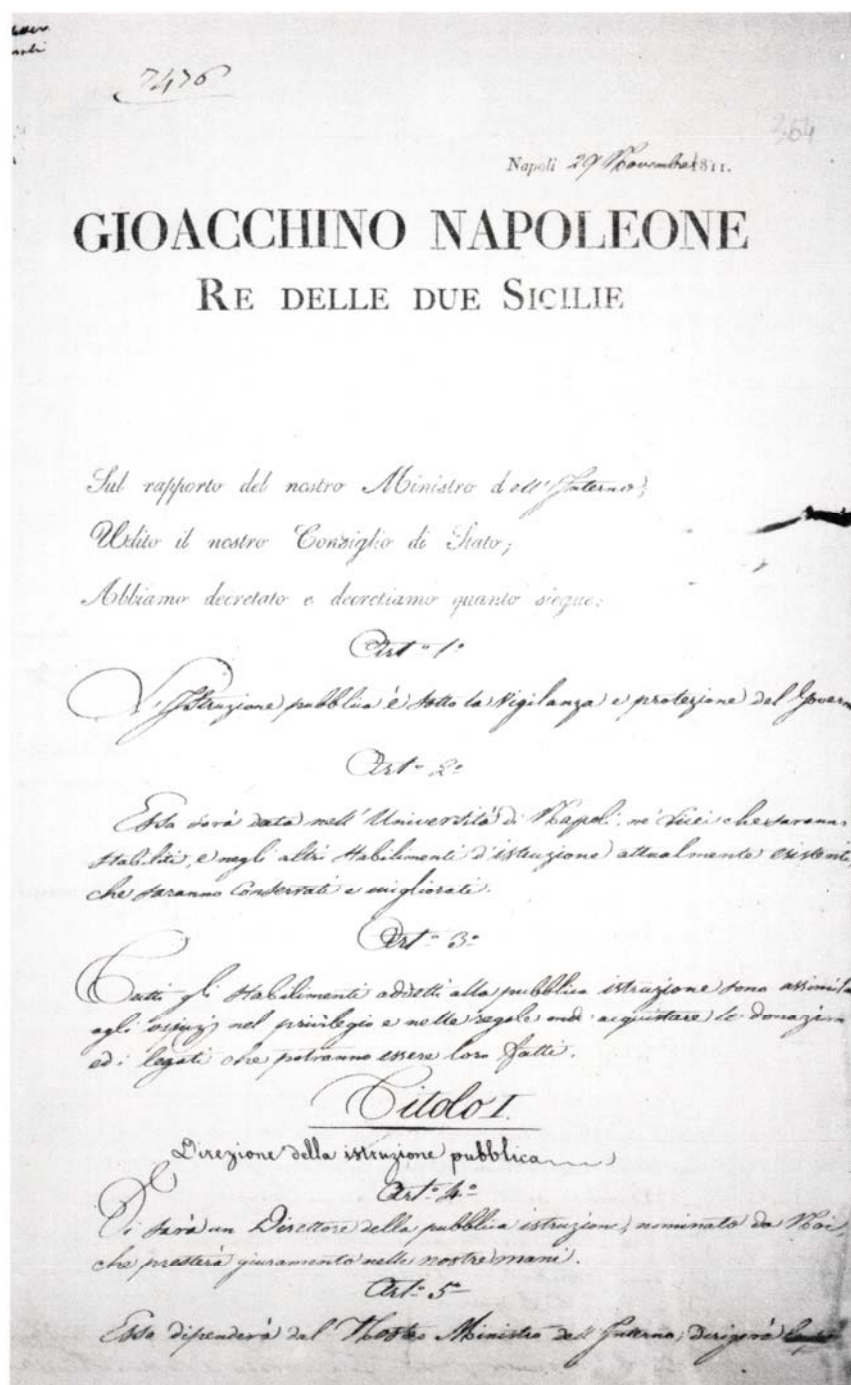 7476
364
Napoli 29 Novembre 1811.
GIOACCHINO NAPOLEONE
RE DELLE DUE SICILIE
Sul rapporto del nostro Ministro dell'Interno;
Udito il nostro Consiglio di Stato;
Abbiamo decretato e decretiamo quanto siegue:
Art.º 1º
L'Istruzione pubblica è sotto la vigilanza e protezione del Govern
Art.º 2º
Essa sarà data nell'Università di Napoli, ne' Licei che saranno
stabiliti, e negli altri stabilimenti d'istruzione attualmente esistenti,
che saranno conservati e migliorati.
Art.º 3º
Tutti gli stabilimenti addetti alla pubblica istruzione sono assimila
agli ospizj nel privilegio e nelle regole onde acquistare le donazion
ed i legati che potranno essere loro fatti.
Titolo I.
Direzione della istruzione pubblica
Art.º 4º
Vi sarà un Direttore della pubblica istruzione, nominato da Noi,
che presterà giuramento nelle nostre mani.
Art.º 5º
Esso dipenderà dal Nostro Ministro dell'Interno; dirigerà